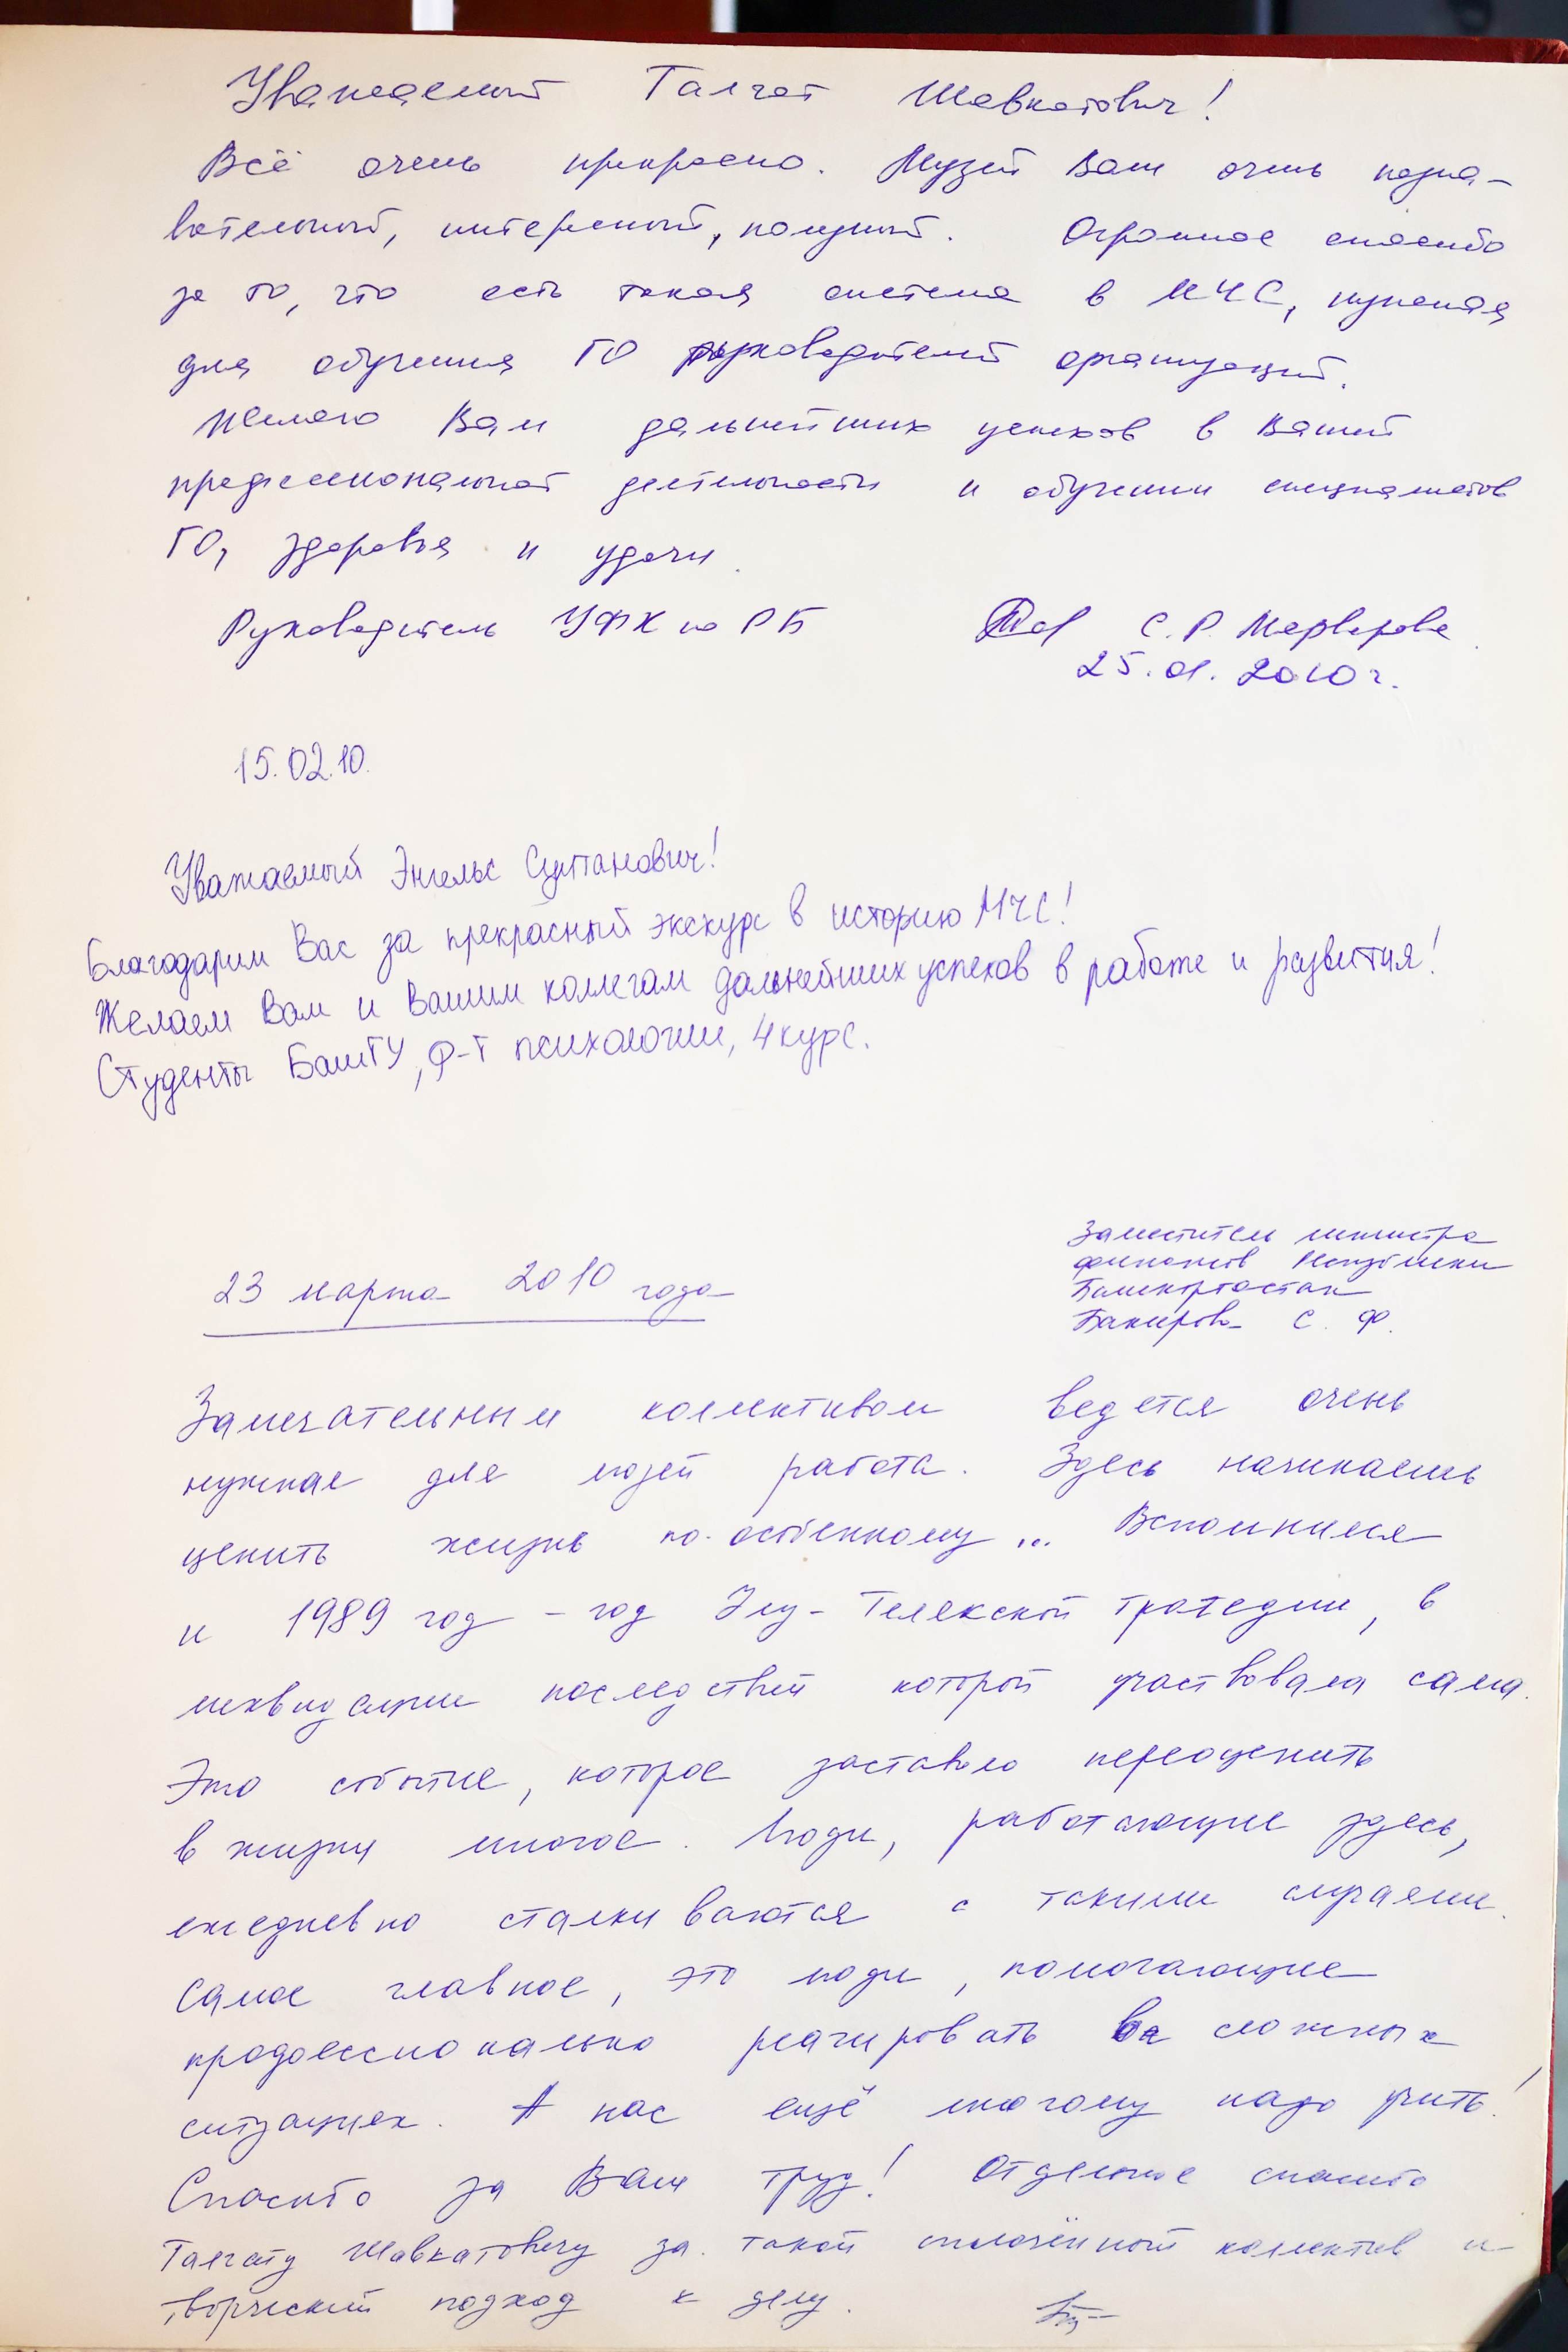 Уважаемый Талгат Шавкатович!
Всё очень прекрасно. Музей Ваш очень позна-
вательный, интересный, нужный. Огромное спасибо
за то, что есть такая система в МЧС, нужная
для обучения ГО руководителей организаций.
Желаю Вам дальнейших успехов в Вашей
профессиональной деятельности и обучении специалистов
ГО, здоровья и удачи.
Руководитель УФК по РБ С.Р.
25.01.2010 г.
15.02.10.
Уважаемый Энгельс Султанович!
Благодарим Вас за прекрасный экскурс в историю МЧС!
Желаем Вам и Вашим коллегам дальнейших успехов в работе и развития!
Студенты БашГУ, ф-т психологии, 4 курс.
Заместитель министра
финансов Республики
Башкортостан
Бакирова С. Ф.
23 марта 2010 года
Замечательным коллективом ведется очень
нужная для людей работа. Здесь начинаешь
ценить жизнь по-особенному... Вспомнился
и 1989 год - год Улу-Телякской трагедии, в
ликвидации последствий которой участвовала сама.
Это событие, которое заставило переоценить
в жизни многое. Люди, работающие здесь,
ежедневно сталкиваются с такими случаями.
Самое главное, это люди, помогающие
профессионально реагировать в сложных
ситуациях. А нас ещё многому надо учить!
Спасибо за Ваш труд! Отдельное спасибо
Талгату Шавкатовичу за такой сплочённый коллектив и
творческий подход к делу.